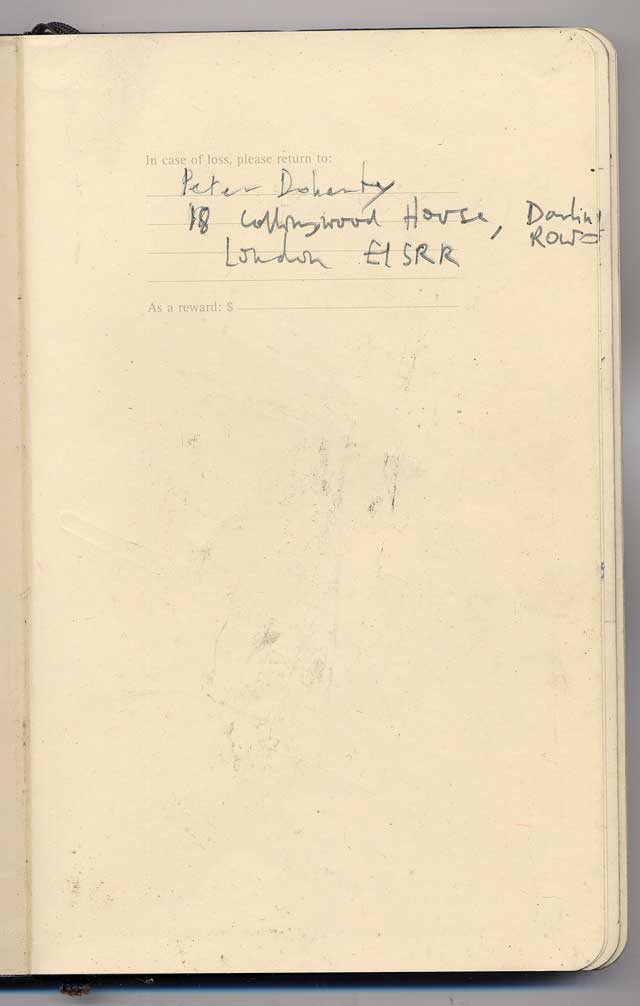 In case of loss, please return to:
Peter Doherty
18 Collingwood House, Darling
ROW
London E1 5RR
As a reward: $